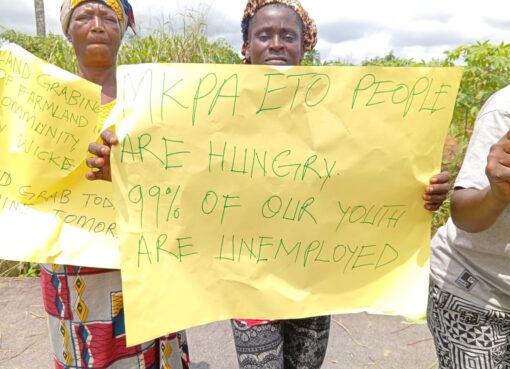 LAND GRABING
OF FARMLAND
COMMUNITY,
WICKE
GRAB TODA
TOMOR
MKPA ETO PEOPLE
ARE HUNGRY.
99% OF OUR YOUTH
ARE UNEMPLOYED